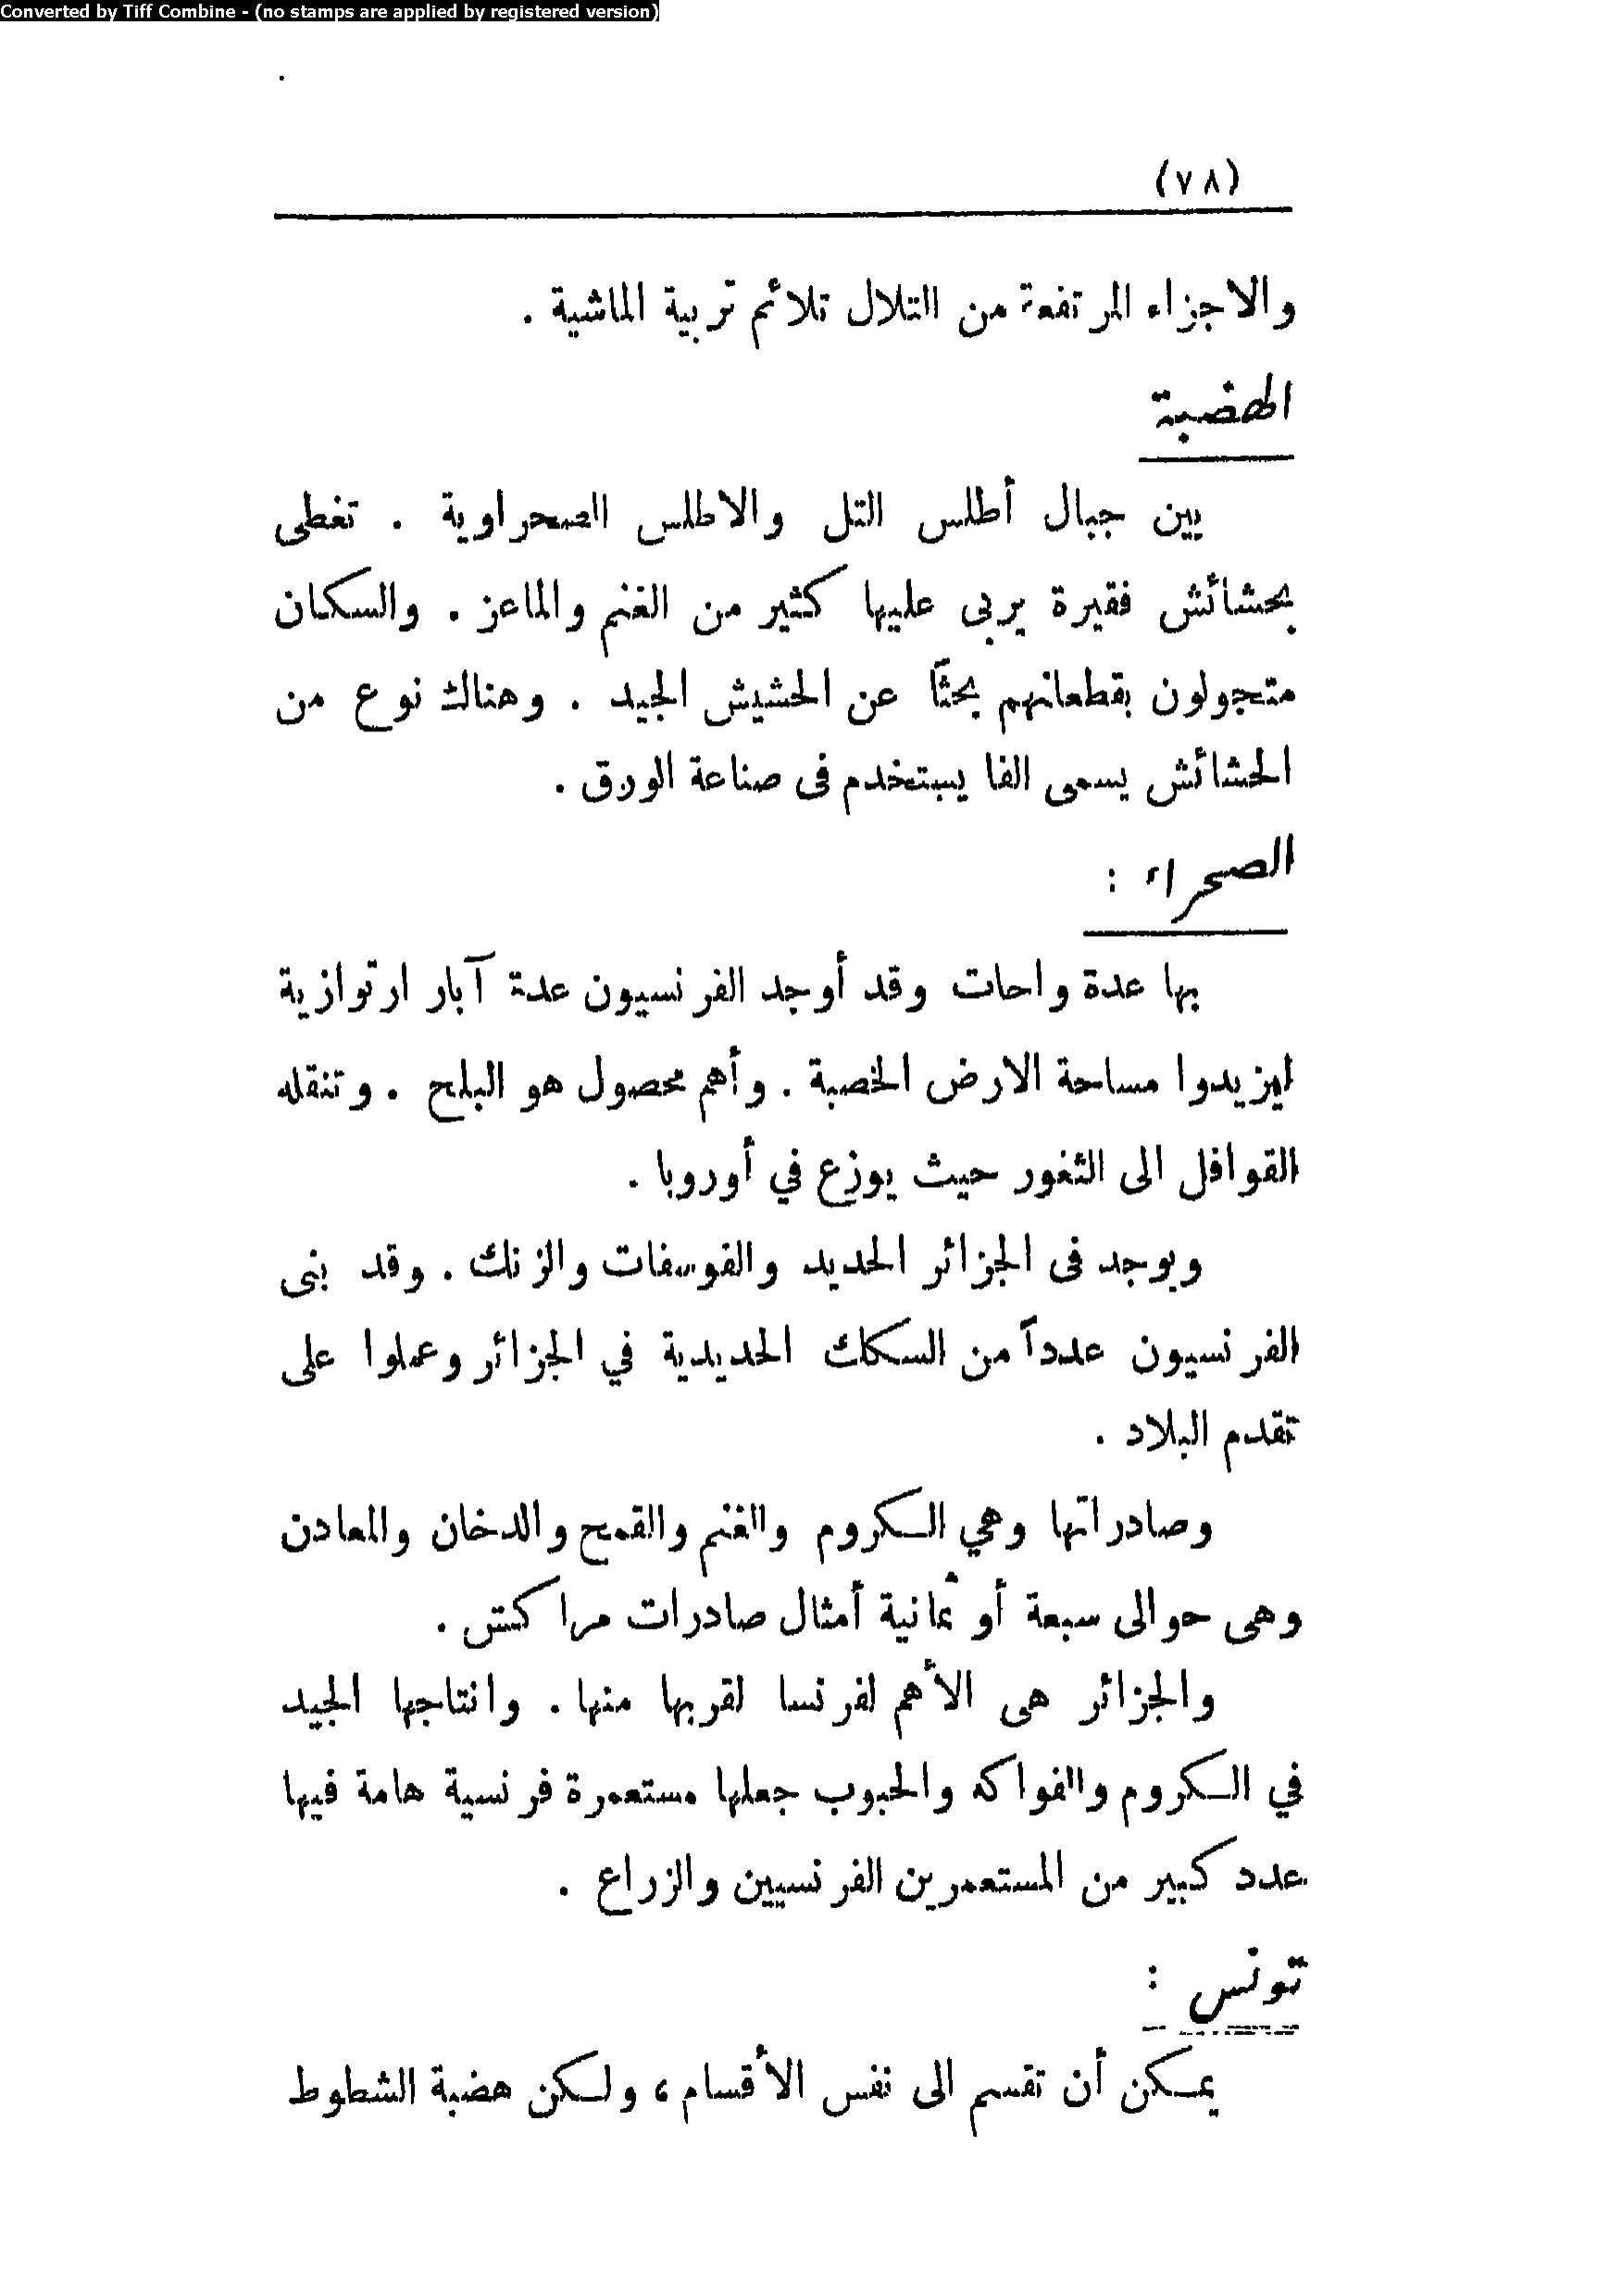 Converted by Tiff Combine - (no stamps are applied by registered version)
(٧٨)
والاجزاء المرتفعة من التلال تلائم تربية الماشية .
الهضبة
بين جبال أطلس التل والاطلس الصحراوية . تغطى
بحشائش فقيرة يربى عليها كثير من الغنم والماعز . والسكان
متجولون بقطعانهم بحثاً عن الحشيش الجيد . وهناك نوع من
الحشائش يسمى الفا يستخدم فى صناعة الورق .
الصحراء :
بها عدة واحات وقد أوجد الفرنسيون عدة آبار ارتوازية
ليزيدوا مساحة الارض الخصبة . وأهم محصول هو البلح . وتنقله
القوافل الى الثغور حيث يوزع في أوروبا .
ويوجد فى الجزائر الحديد والفوسفات والزنك . وقد بنى
الفرنسيون عدداً من السكك الحديدية في الجزائر وعملوا على
تقدم البلاد .
وصادراتها وهي الكروم والغنم والقمح والدخان والمعادن
وهى حوالى سبعة أو ثمانية أمثال صادرات مراكش .
والجزائر هى الأهم لفرنسا لقربها منها . وانتاجها الجيد
في الكروم والفواكه والحبوب جعلها مستعمرة فرنسية هامة فيها
عدد كبير من المستعمرين الفرنسيين والزراع .
تونس :
يمكن أن تقسم الى نفس الأقسام ، ولكن هضبة الشطوط